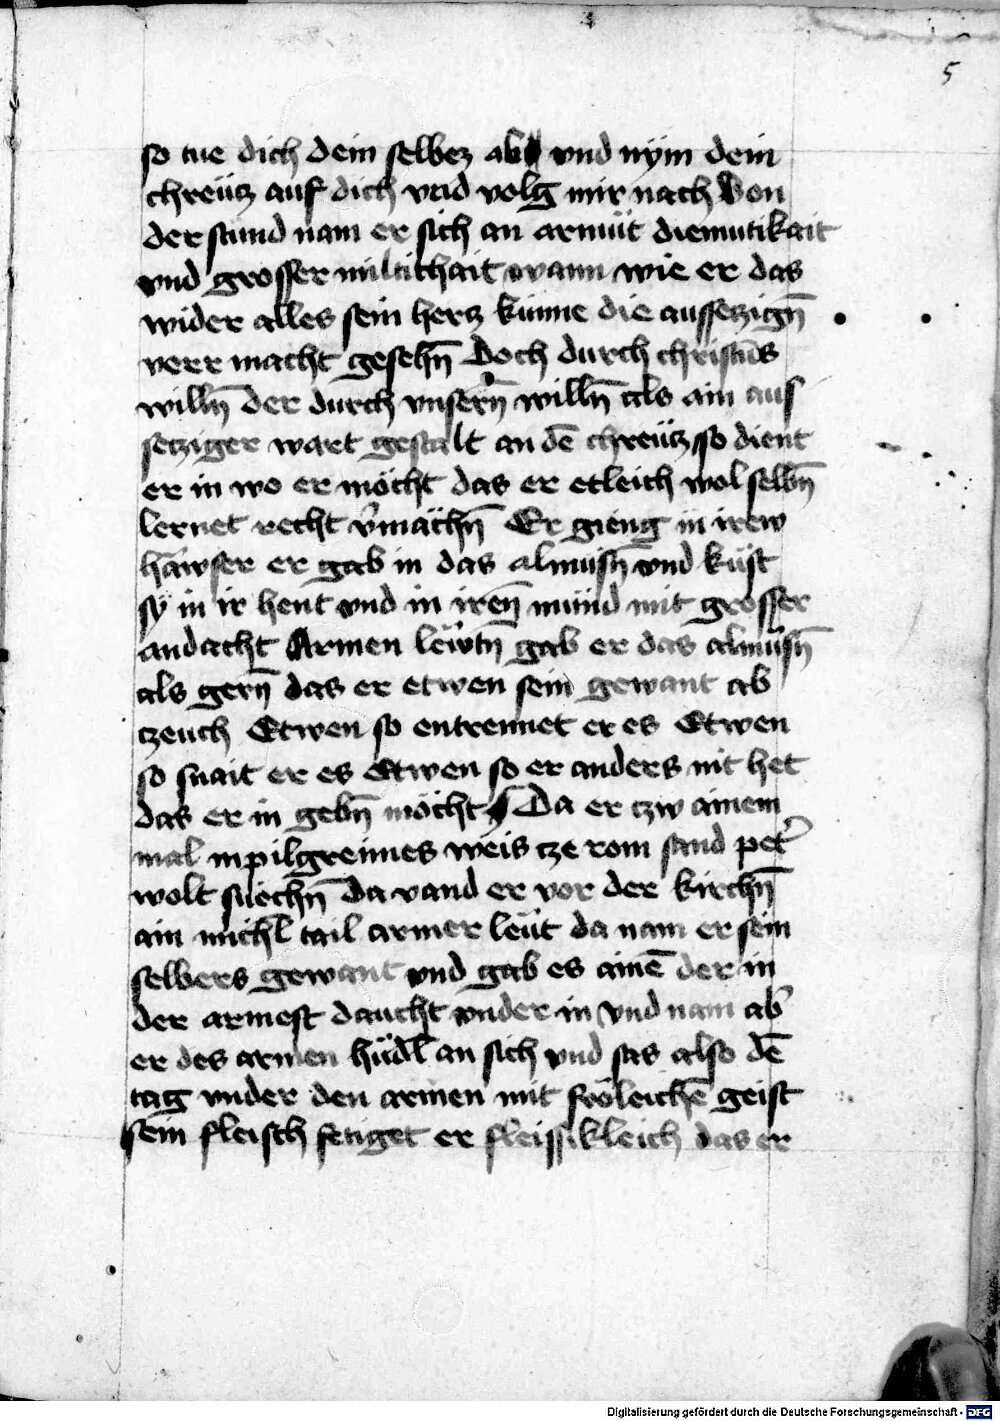 5
so tue dich dein selbez ab vnd nym dein
chreütz auf dich vnd volg mir nach Von
der stund nam er sich an armüt diemutikait
vnd grosser miltichait wann wie er das
wider alles sein hertz kunne die aussetzign̄
verr macht gesehn̄ Doch durch christus
willn̄ der durch vnsern̄ willn̄ als ain aus
setziger wart gestalt an dē chreütz so dient
er in wo er möcht das er etleich wol selbn̄
lernet recht v̄mächn̄ Er gieng in irew
häwser er gab in das almusn̄ vnd küst
sy in ir hent vnd in iren̄ mund mit grosser
andacht Armen lewtn̄ gab er das almusn̄
als gern̄ das er etwen sein gewant ab
tzeuch Etwen so entrennet er es Etwen
so snait er es Etwen so er anders nit het
das er in gebn̄ möcht Da er tzw ainem
mal in pilgreimes weis tze rom sand pet̄
wolt suechn̄ Da vand er vor der kirchn̄
ain michl̄ tail armer leüt da nam er sein
selbers gewant vnd gab es ainē der in
der armest daucht vnder in vnd nam ab̄
er des armen hüdl̄ an sich vnd sas also dē
tag vnder den armen mit fröleichē geist
sein fleisch fetiget er fleissikleich das er
Digitalisierung gefördert durch die Deutsche Forschungsgemeinschaft - DFG